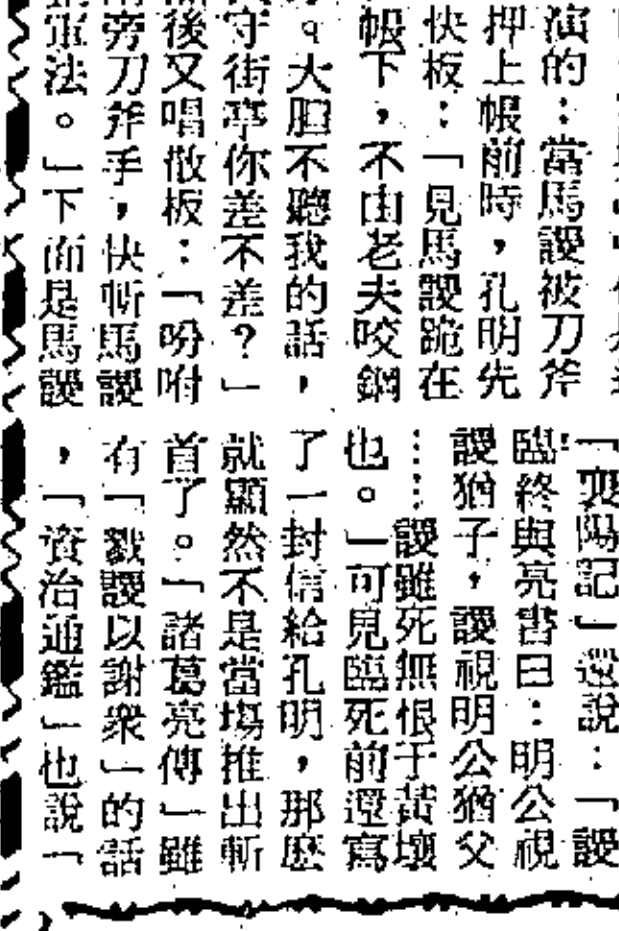 演的：當馬謖被刀斧
押上帳前時，孔明先
快板：「見馬謖跪在
帳下，不由老夫咬鋼
。大胆不聽我的話，
守街亭你差不差？」
後又唱散板：「吩咐
旁刀斧手，快斬馬謖
軍法。」下面是馬謖
「襄陽記」還說：「謖
臨終與亮書曰：明公視
謖猶子，謖視明公猶父
……謖雖死無恨于黃壤
也。」可見臨死前還寫
了一封信給孔明，那麽
就顯然不是當塲推出斬
首了。「諸葛亮傳」雖
有「戮謖以謝衆」的話
，「資治通鑑」也說「